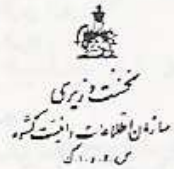 نخست وزیری
سازمان اطلاعات و امنیت کشور
س . ا . و . ا . ک